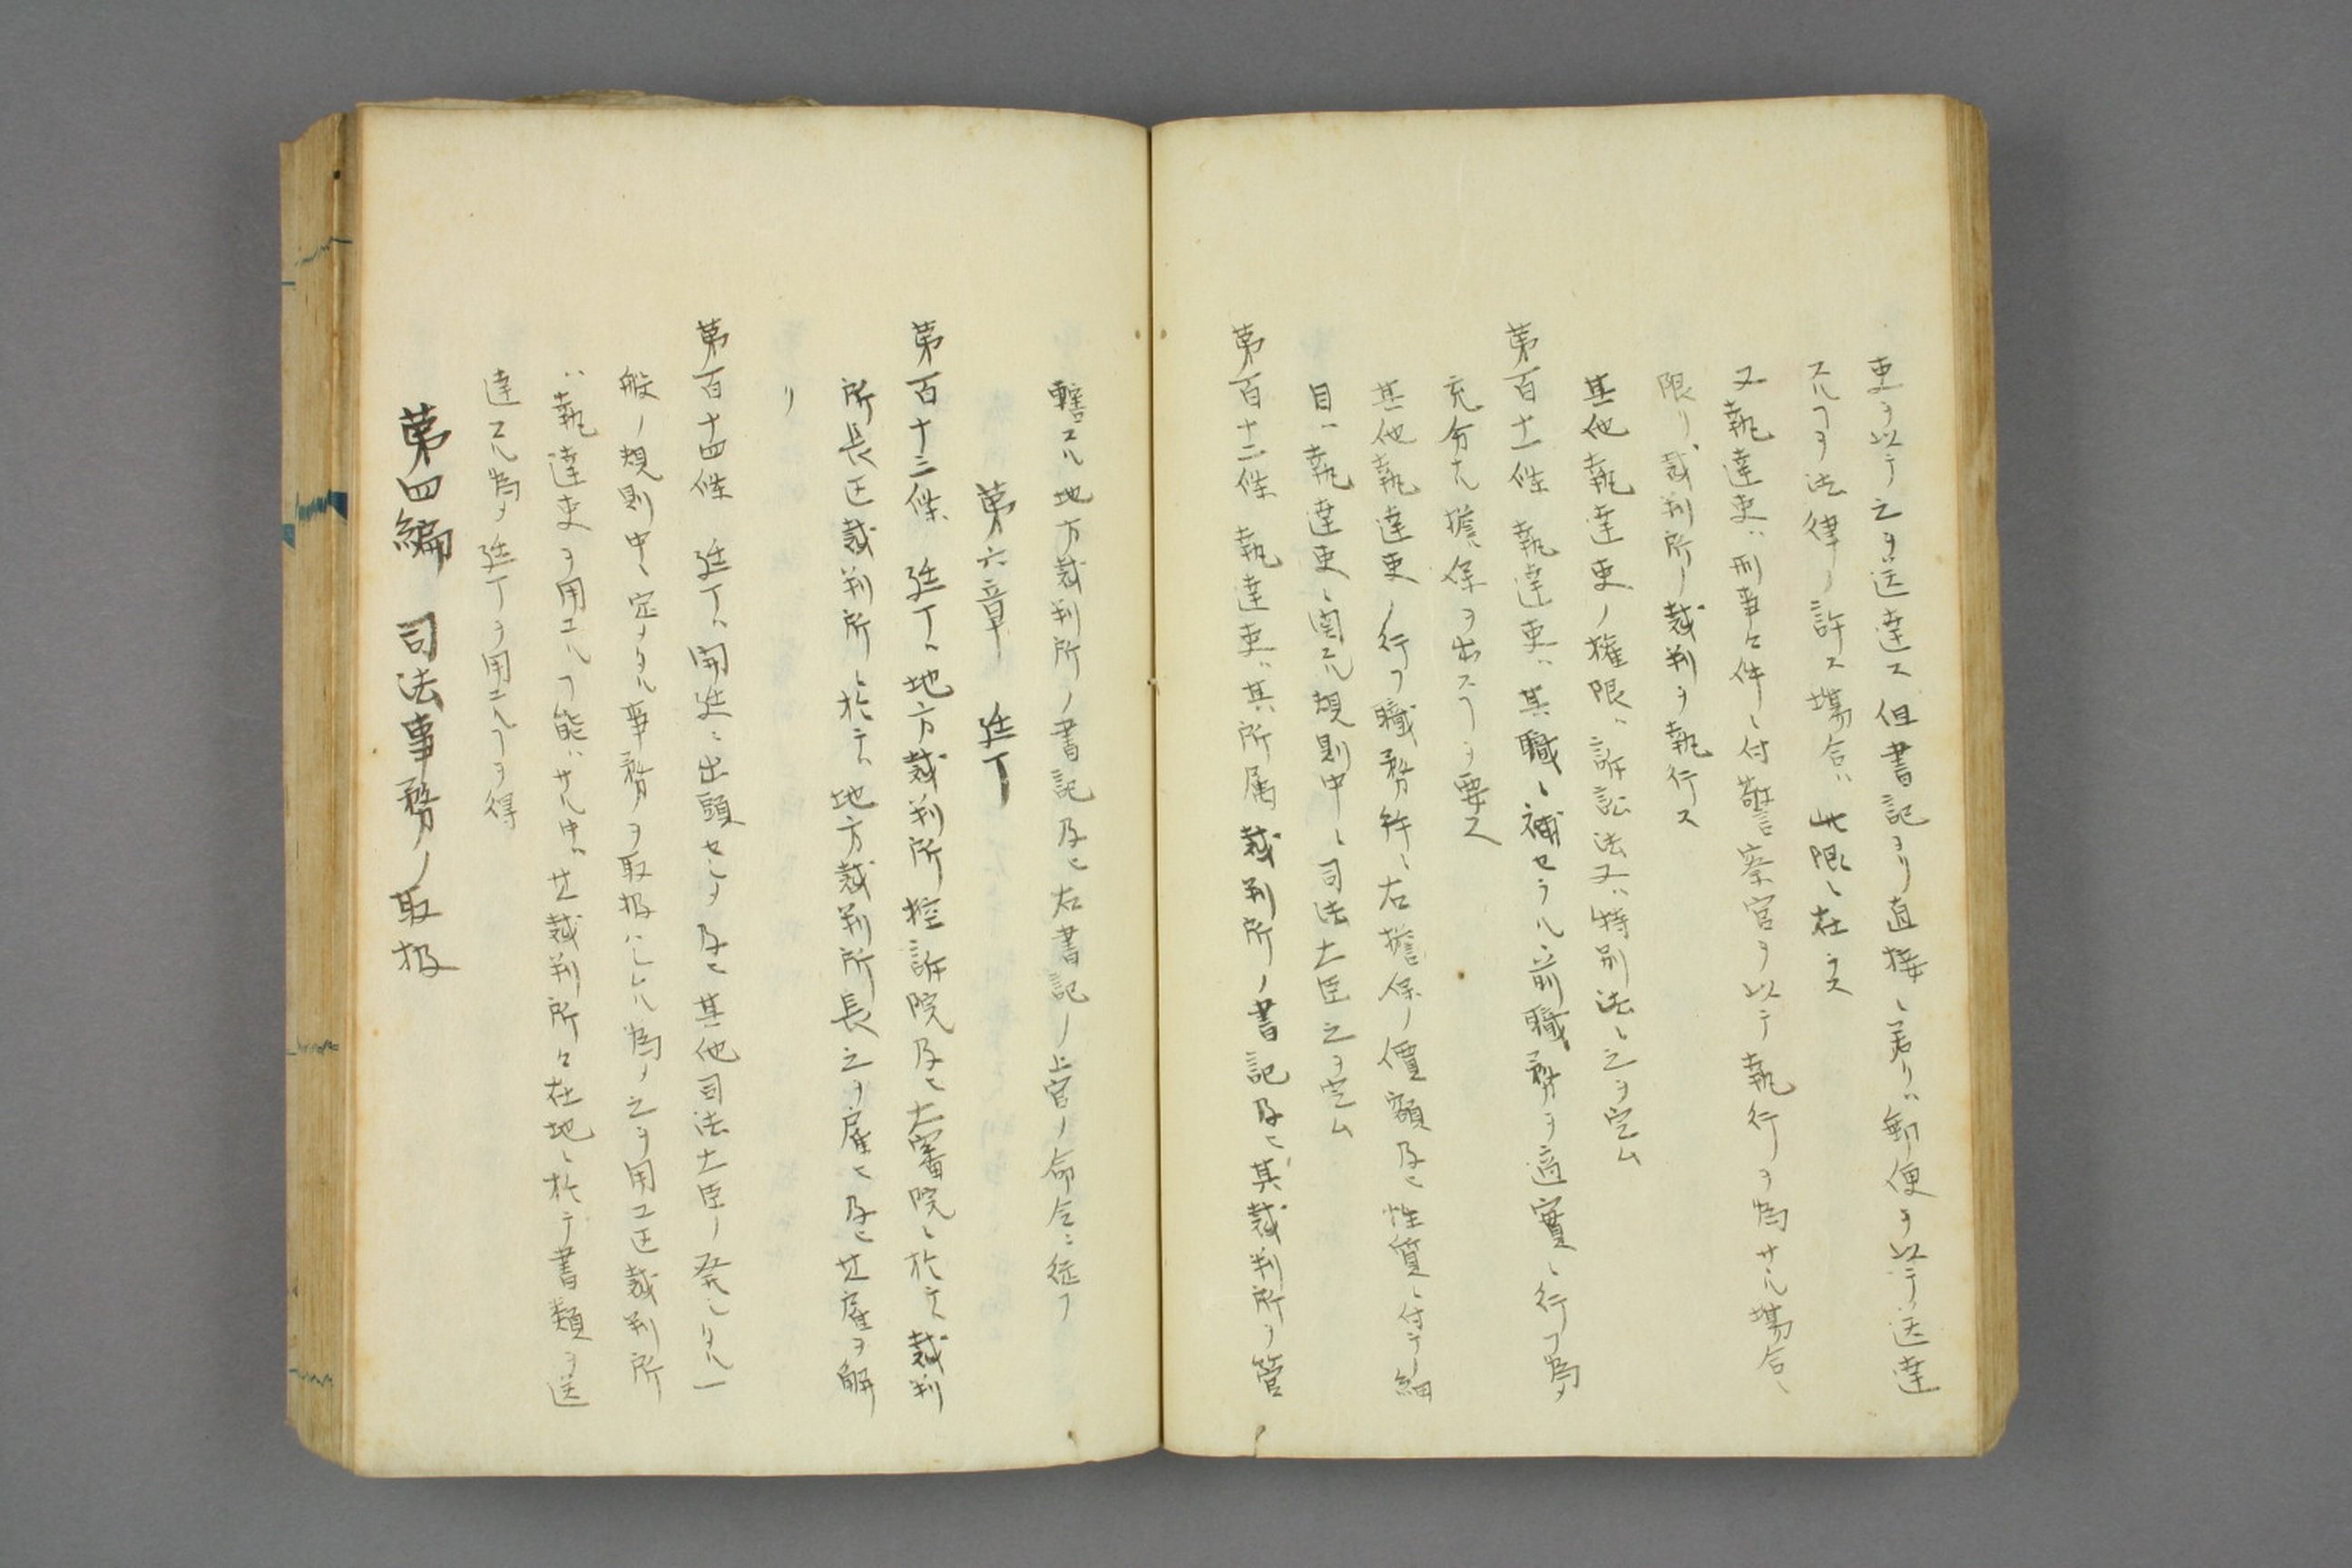 吏ヲ以テ之ヲ送達ス但書記ヨリ直接ニ若クハ郵便ヲ以テ送達
スルヿヲ法律ノ許ス塲合ハ此限ニ在ラス
又執達吏ハ刑事々件ニ付警察官ヲ以テ執行ヲ為サル塲合ニ
限リ裁判所ノ裁判ヲ執行ス
其他執達吏ノ権限ハ訴訟法又ハ特別法ニ之ヲ定ム
第百十一條 執達吏ハ其職ニ補セラルヽ前職務ヲ適實ニ行フ為メ
充分ナル擔保ヲ出スヿヲ要ス
其他執達吏ノ行フ職務幷ニ右擔保ノ價額及ヒ性質ニ付テノ細
目ハ執達吏ニ関スル規則中ニ司法大臣之ヲ定ム
第百十二條 執達吏ハ其所属裁判所ノ書記及ヒ其裁判所ヲ管
轄スル地方裁判所ノ書記及ヒ右書記ノ上官ノ命令ニ従フ
第六章 廷丁
第百十三條 廷丁ハ地方裁判所控訴院及ヒ大審院ニ於テハ裁判
所長区裁判所ニ於テハ地方裁判所長之ヲ雇ヒ及ヒ其雇ヲ解
ク
第百十四條 廷丁ハ開廷ニ出頭セシメ及ヒ其他司法大臣ノ発シタル一
般ノ規則中ニ定メタル事務ヲ取扱ハシムル為メ之ヲ用ユ区裁判所
ハ執達吏ヲ用ユルヿ能ハサル中ハ其裁判所々在地ニ於テ書類ヲ送
達スル為メ廷丁ヲ用ユルヿヲ得
第四編 司法事務ノ取扱